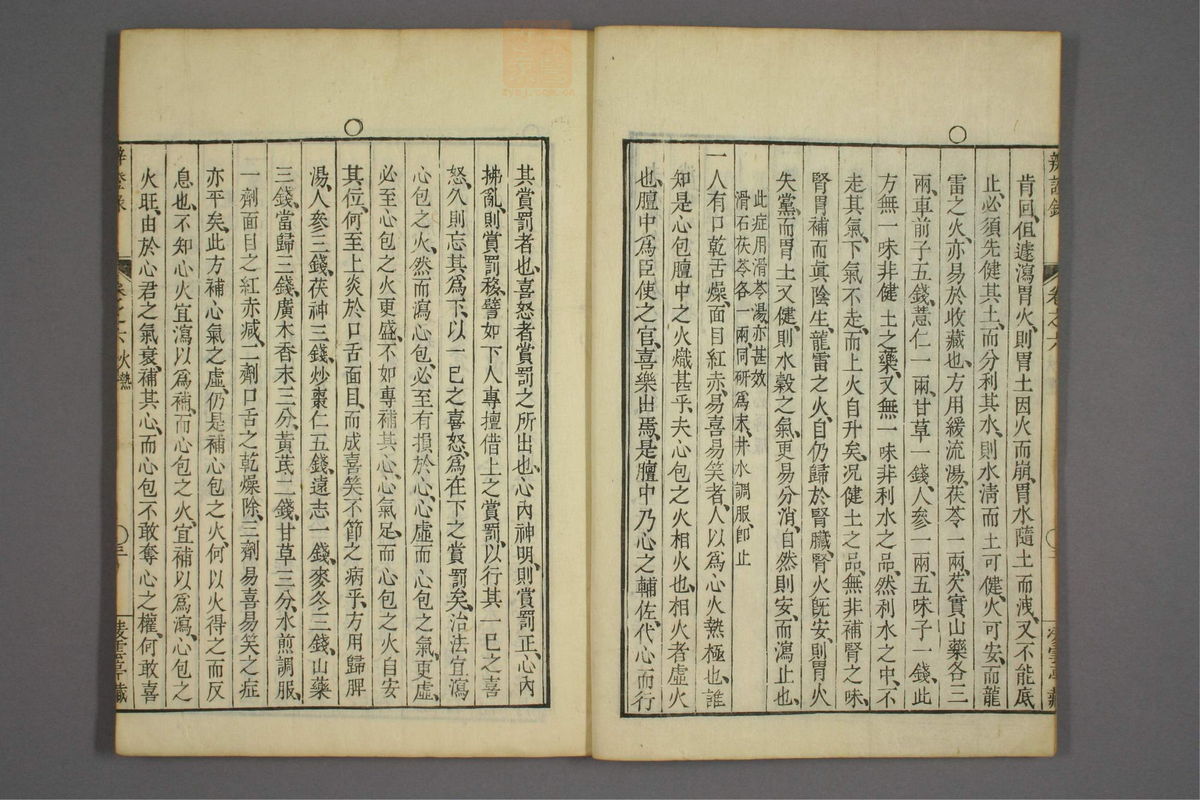 辨證錄 卷之六
肯回但遽瀉胃火則胃土因火而崩胃水隨土而洩又不能底
止必須先健其土而分利其水則水清而土可健火可安而龍
雷之火亦易於收藏也方用緩流湯茯苓一兩芡實山藥各三
兩車前子五錢薏仁一兩甘草一錢人參一兩五味子一錢此
方無一味非健土之藥又無一味非利水之品然利水之中不
走其氣下氣不走而上火自升矣况健土之品無非補腎之味
腎胃補而眞陰生龍雷之火自仍歸於腎臟腎火旣安則胃火
失黨而胃土又健則水穀之氣更易分消自然則安而瀉止也
此症用滑苓湯亦甚效
滑石茯苓各一兩同研爲末井水調服卽止
一人有口乾舌燥面目紅赤易喜易笑者人以爲心火熱極也誰
知是心包膻中之火熾甚乎夫心包之火相火也相火者虛火
也膻中爲臣使之官喜樂出焉是膻中乃心之輔佐代心而行
其賞罰者也喜怒者賞罰之所出也心內神明則賞罰正心內
拂亂則賞罰移譬如下人專擅借上之賞罰以行其一已之喜
怒久則忘其爲下以一已之喜怒爲在下之賞罰矣治法宜瀉
心包之火然而瀉心包必至有損於心心虛而心包之氣更虛
必至心包之火更盛不如專補其心心氣足而心包之火自安
其位何至上炎於口舌面目而成喜笑不節之病乎方用歸脾
湯人參三錢茯神三錢炒棗仁五錢遠志一錢麥冬三錢山藥
三錢當歸三錢廣木香末三分黃芪二錢甘草三分水煎調服
一劑面目之紅赤减二劑口舌之乾燥除三劑易喜易笑之症
亦平矣此方補心氣之虛仍是補心包之火何以火得之而反
息也不知心火宜瀉以爲補而心包之火宜補以爲瀉心包之
火旺由於心君之氣衰補其心而心包不敢奪心之權何敢喜
卷之六 火熱